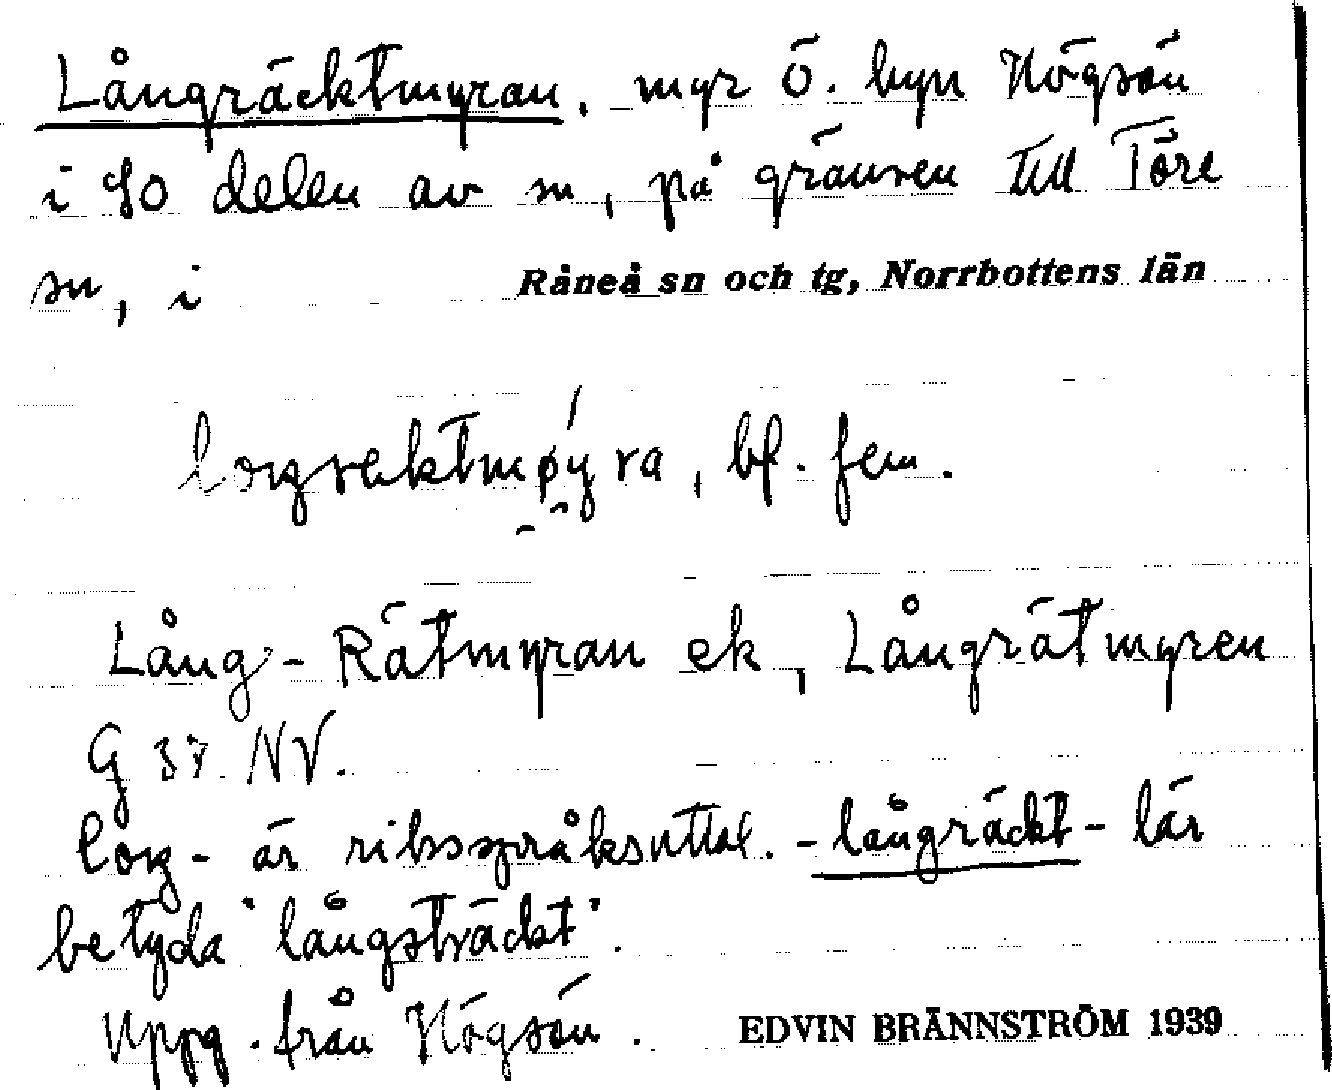 Långräcktmyran, myr Ö. byn Högsön
i SO delen av sn, på gränsen till Töre
sn, i Råneå sn och tg, Norrbottens län
loŋrektmøy̑ra, bf. fem.
Lång-Rätmyran ek, Långrätmyren
G 37 NV.
loŋ- är riksspråksuttal. -långräckt- lär
betyda "långsträckt".
Uppg. från Högsön. EDVIN BRÄNNSTRÖM 1939